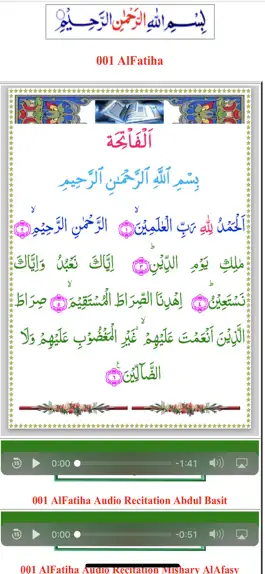 بِسْمِ اللهِ الرَّحْمٰنِ الرَّحِيْمِ
001 AlFatiha
اَلْفَاتِحَة
بِسْمِ ٱللَّهِ ٱلرَّحْمَـٰنِ ٱلرَّحِيمِ
اَلْحَمْدُ لِلّٰهِ رَبِّ الْعٰلَمِيْنَۙ ﴿١﴾ الرَّحْمٰنِ الرَّحِيْمِۙ ﴿٢﴾
مٰلِكِ يَوْمِ الدِّيْنِؕ ﴿٣﴾ اِيَّاكَ نَعْبُدُ وَاِيَّاكَ
نَسْتَعِيْنُؕ ﴿٤﴾ اِهْدِنَا الصِّرَاطَ الْمُسْتَقِيْمَۙ ﴿٥﴾ صِرَاطَ
الَّذِيْنَ اَنْعَمْتَ عَلَيْهِمْ ۙ غَيْرِ الْمَغْضُوْبِ عَلَيْهِمْ وَلَا
الضَّآلِّيْنَ ﴿٦﴾
15 0:00 -1:41
001 AlFatiha Audio Recitation Abdul Basit
15 0:00 -0:51
001 AlFatiha Audio Recitation Mishary AlAfasy